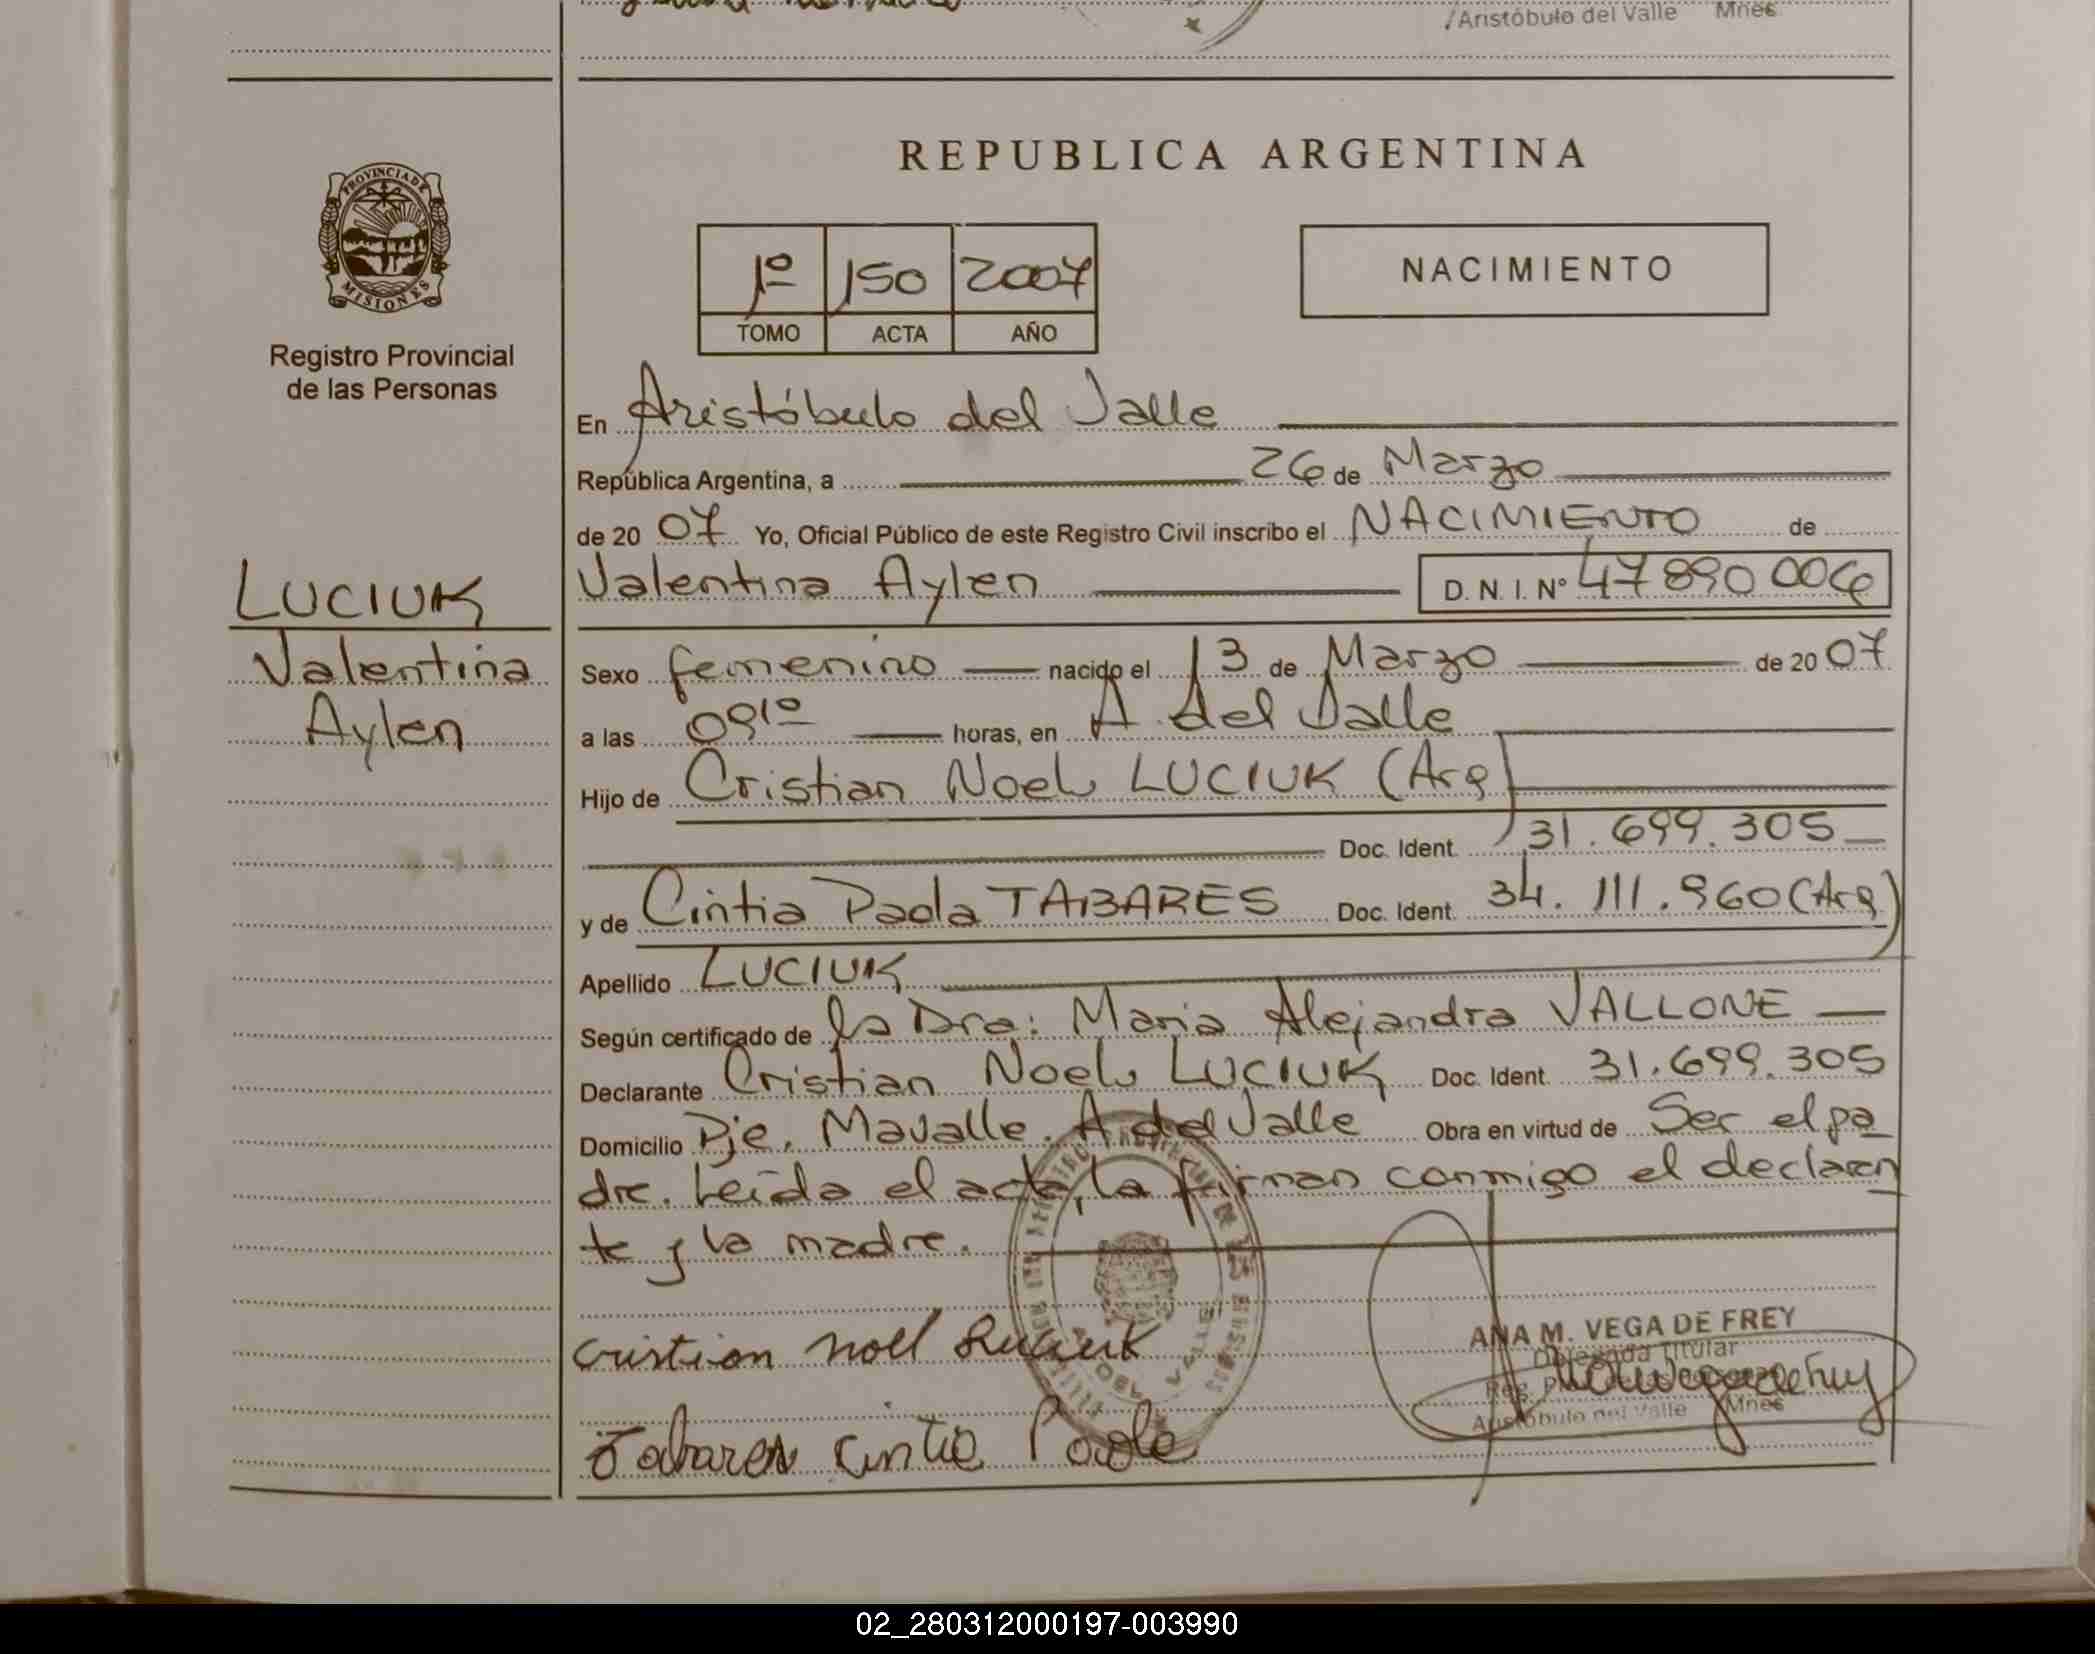 /Aristóbulo del Valle Mnes.
PROVINCIA DE
MISIONES
Registro Provincial
de las Personas
REPUBLICA ARGENTINA
1º 150 2007
TOMO ACTA AÑO
NACIMIENTO
En Aristóbulo del Valle
República Argentina, a 26 de Marzo
de 20 07 Yo, Oficial Público de este Registro Civil inscribo el NACIMIENTO de
LUCIUK
Valentina Aylen D. N. I. Nº 47890006
Valentina
Aylen
Sexo femenino nacido el 13 de Marzo de 20 07
a las 09¹⁰ horas, en A. del Valle
Hijo de Cristian Noel LUCIUK (Arg)
Doc. Ident. 31.699.305
y de Cintia Paola TABARES Doc. Ident. 34.111.960 (Arg)
Apellido LUCIUK
Según certificado de la Dra: Maria Alejandra VALLONE
Declarante Cristian Noel LUCIUK Doc. Ident. 31.699.305
Domicilio Pje. Mavalle. A del Valle Obra en virtud de Ser el pa
dre. Leída el acta, la firman conmigo el declaran
te y la madre.
Cristian Noel Luciuk
ANA M. VEGA DE FREY
Delegada Titular
Aristóbulo del Valle Mnes
Tabares Cintia Paola
02_280312000197-003990